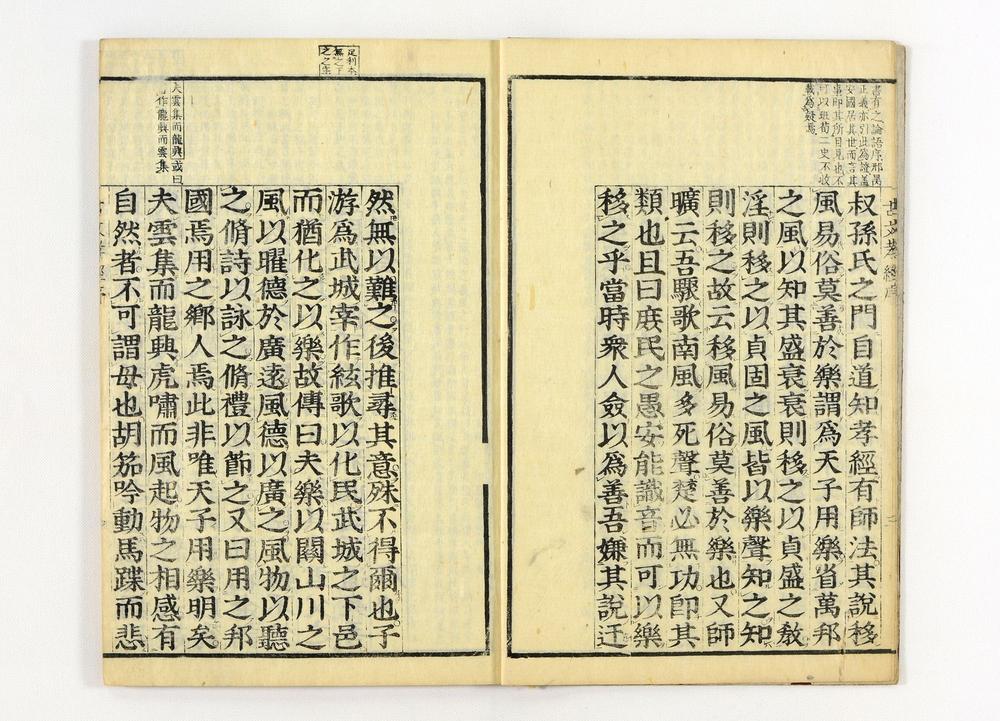 書有之論語序邢昺
正義亦引此為證蓋
安國居其世而言其
事即其所目見也不
可以班荀二史不收
載為疑焉
叔孫氏之門自道知孝經有師法其說移
風易俗莫善於樂謂爲天子用樂省萬邦
之風以知其盛衰衰則移之以貞盛之敎
淫則移之以貞固之風皆以樂聲知之知
則移之故云移風易俗莫善於樂也又師
曠云吾驟歌南風多死聲楚必無功卽其
類也且曰庻民之愚安能識音而可以樂
移之乎當時衆人僉以爲善吾嫌其說迂
古文孝經序
足利本
無之下
之之字
然無以難之後推尋其意殊不得爾也子
游爲武城宰作絃歌以化民武城之下邑
而猶化之以樂故傳曰夫樂以關山川之
風以曜德於廣逺風德以廣之風物以聽
之脩詩以詠之脩禮以節之又曰用之邦
國焉用之鄉人焉此非唯天子用樂明矣
夫雲集而龍興虎嘯而風起物之相感有
自然者不可謂毋也胡笳吟動馬蹀而悲
夫雲集而龍興或曰
作龍興而雲集